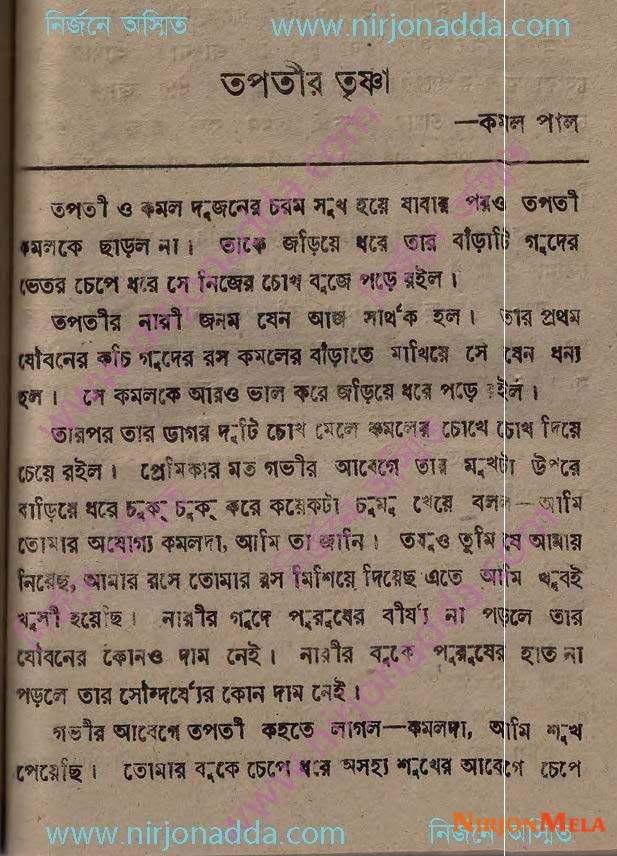 নির্জনে অস্মিত www.nirjonadda.com
তপতীর তৃষ্ণা
—কমল পাল
তপতী ও কমল দুজনের চরম সুখ হয়ে যাবার পরও তপতী
কমলকে ছাড়ল না। তাকে জড়িয়ে ধরে তার বাঁড়াটি গুদের
ভেতর চেপে ধরে সে নিজের চোখ বুজে পড়ে রইল।
তপতীর নারী জনম যেন আজ সার্থক হল। তার প্রথম
যৌবনের কচি গুদের রস কমলের বাঁড়াতে মাখিয়ে সে যেন ধন্য
হল। সে কমলকে আরও ভাল করে জড়িয়ে ধরে পড়ে রইল।
তারপর তার ডাগর দুটি চোখ মেলে কমলের চোখে চোখ দিয়ে
চেয়ে রইল। প্রেমিকার মত গভীর আবেগে তার মুখটা উপরে
বাড়িয়ে ধরে চুক্ চুক্ করে কয়েকটা চুমু খেয়ে বলল—আমি
তোমার অযোগ্য কমলদা, আমি তা জানি। তবুও তুমি যে আমায়
নিয়েছ, আমার রসে তোমার রস মিশিয়ে দিয়েছ এতে আমি খুবই
খুসী হয়েছি। নারীর গুদে পুরুষের বীর্য্য না পড়লে তার
যৌবনের কোনও দাম নেই। নারীর বুকে পুরুষের হাত না
পড়লে তার সৌন্দর্য্যের কোন দাম নেই।
গভীর আবেগে তপতী কহতে লাগল—কমলদা, আমি শুখ
পেয়েছি। তোমার বুকে চেপে ধরে অসহ্য শুখের আবেগে চেপে
NIRJONMELA
www.nirjonadda.com নির্জনে অস্মিত